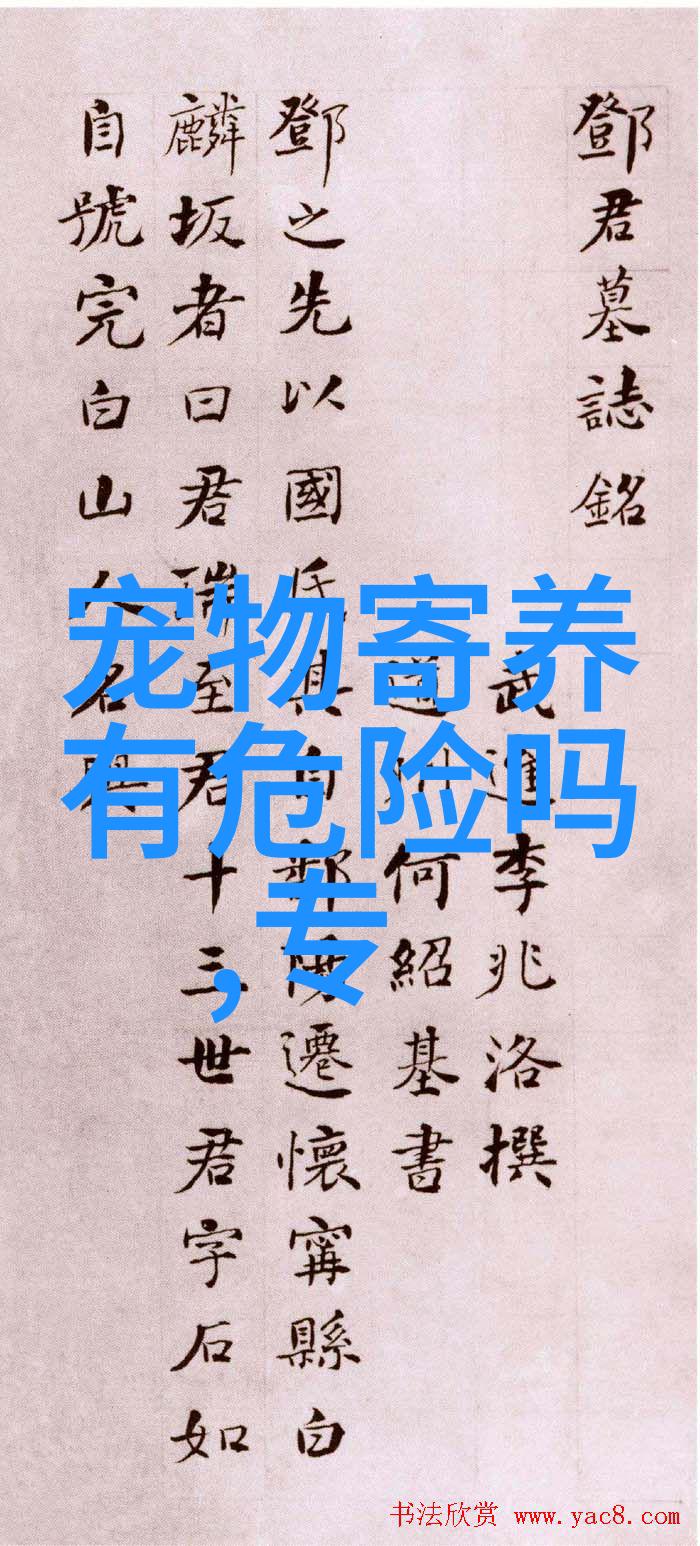 鄧君墓誌銘
武進李兆洛撰
道州何紹基書
鄧之先以國氏其自鄱陽遷懷甯縣白
麟坂者曰君瑞至君十三世君字石如
自號完白山人名與
宠物寄养
有危险吗
,专
书法欣赏 www.yac8.com